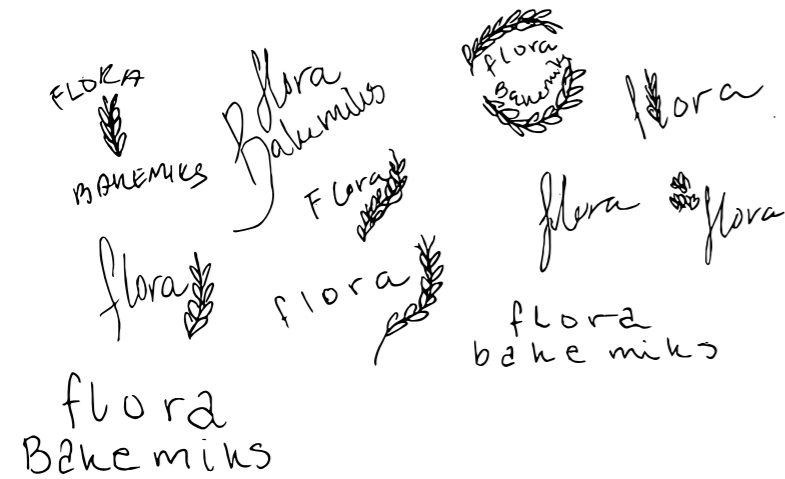 FLORA
BAKEMIKS
flora
Bakemiks
flora
Bakemiks
flora
Flora
flora
flora
flora
flora
flora
flora
bake miks
flora
Bake miks